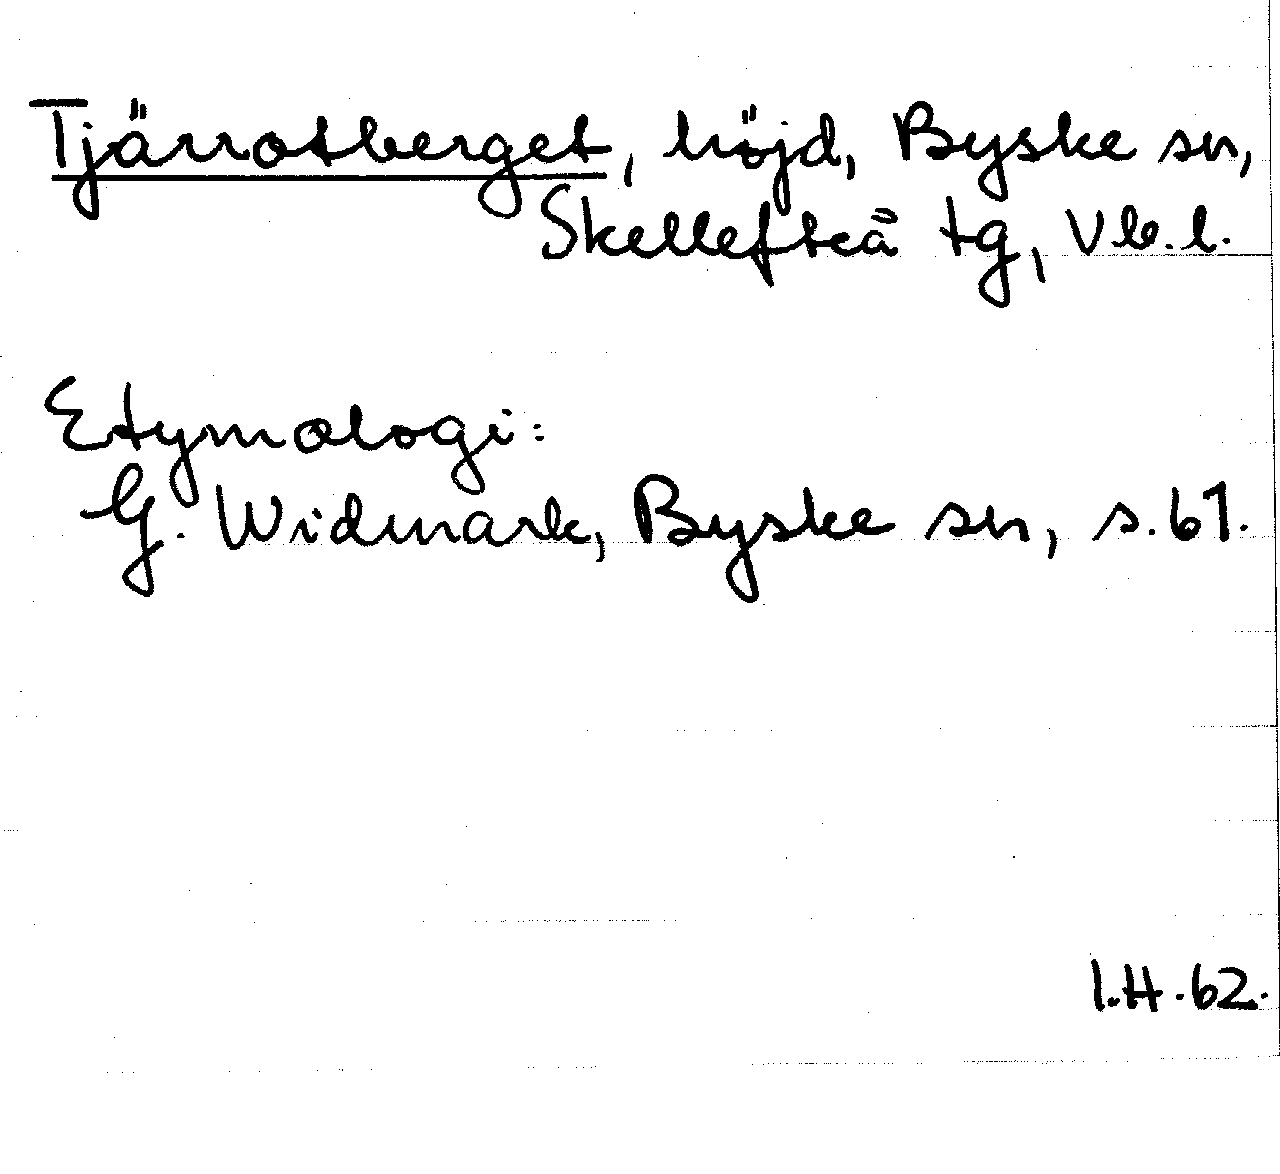 Tjärrotberget, höjd, Byske sn,
Skellefteå tg, Vb.l.
Etymologi:
G. Widmark, Byske sn, s.61.
I.H.62.